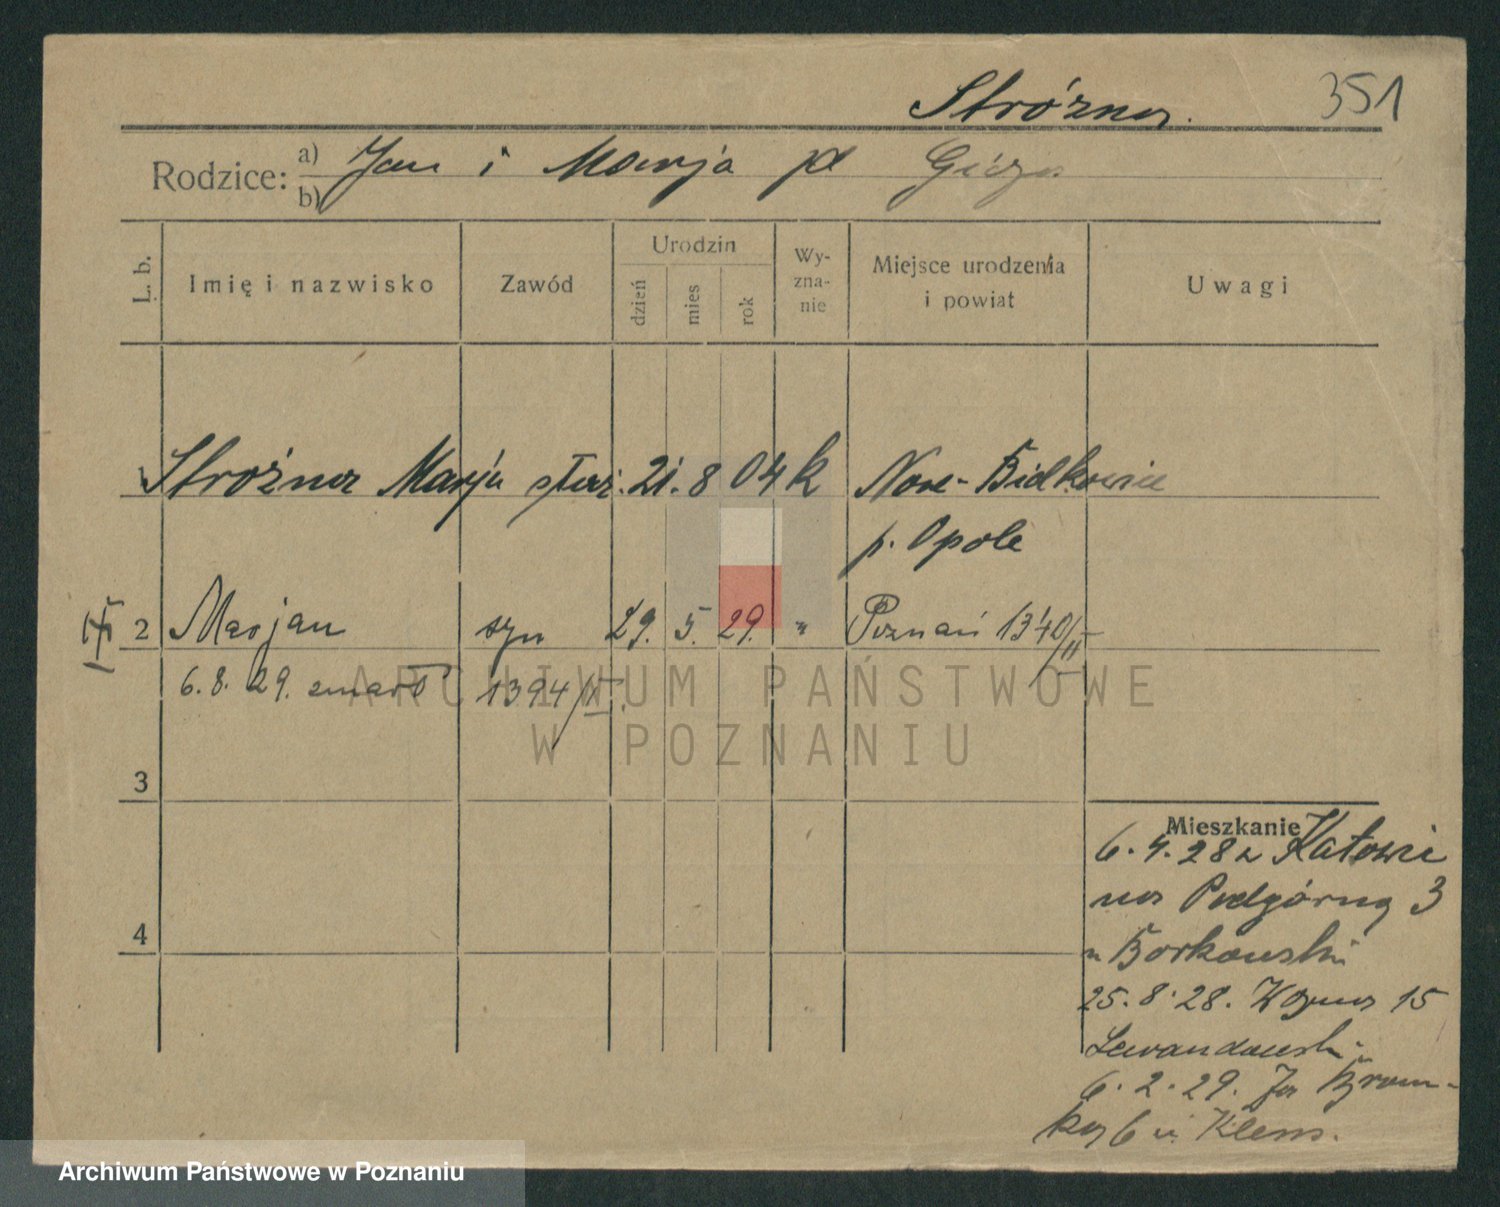 Stróżna. 351
Rodzice: a) Jan i Marja
b)
L. b. Imię i nazwisko Zawód Urodzin dzień mies rok Wy-zna-nie Miejsce urodzenia i powiat Uwagi
Stróżna Marja służ. 21. 8 04 k Nowe-
p. Opole
2 Marjan syn 29. 5. 29. " Poznań 1340/II
6. 8. 29. zmarł 1394/
3
Mieszkanie
6. 4. 28 z Katowic
na Podgórną 3
u Borkowski
25. 8. 28. 15
4
Lewandowski
6. 2. 29.
6 u Klem.
ARCHIWUM PAŃSTWOWE
W POZNANIU
Archiwum Państwowe w Poznaniu